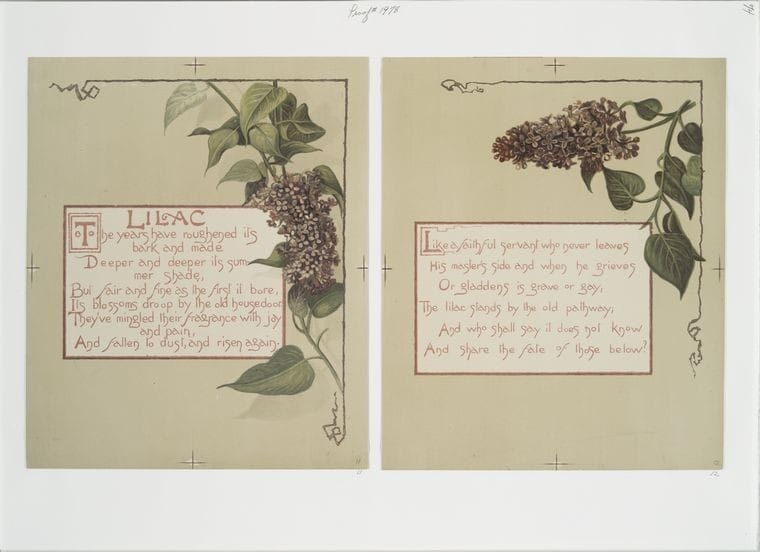 Proof # 1978
LILAC
The years have roughened its
bark and made
Deeper and deeper its sum-
mer shade,
But fair and fine as the first it bore,
Its blossoms droop by the old housedoor
They've mingled their fragrance with joy
and pain,
And fallen to dust, and risen again.
11
11
Like a faithful servant who never leaves
His master's side and when he grieves
Or gladdens is grave or gay,
The lilac stands by the old pathway;
And who shall say it does not know
And share the fate of those below?
12
12